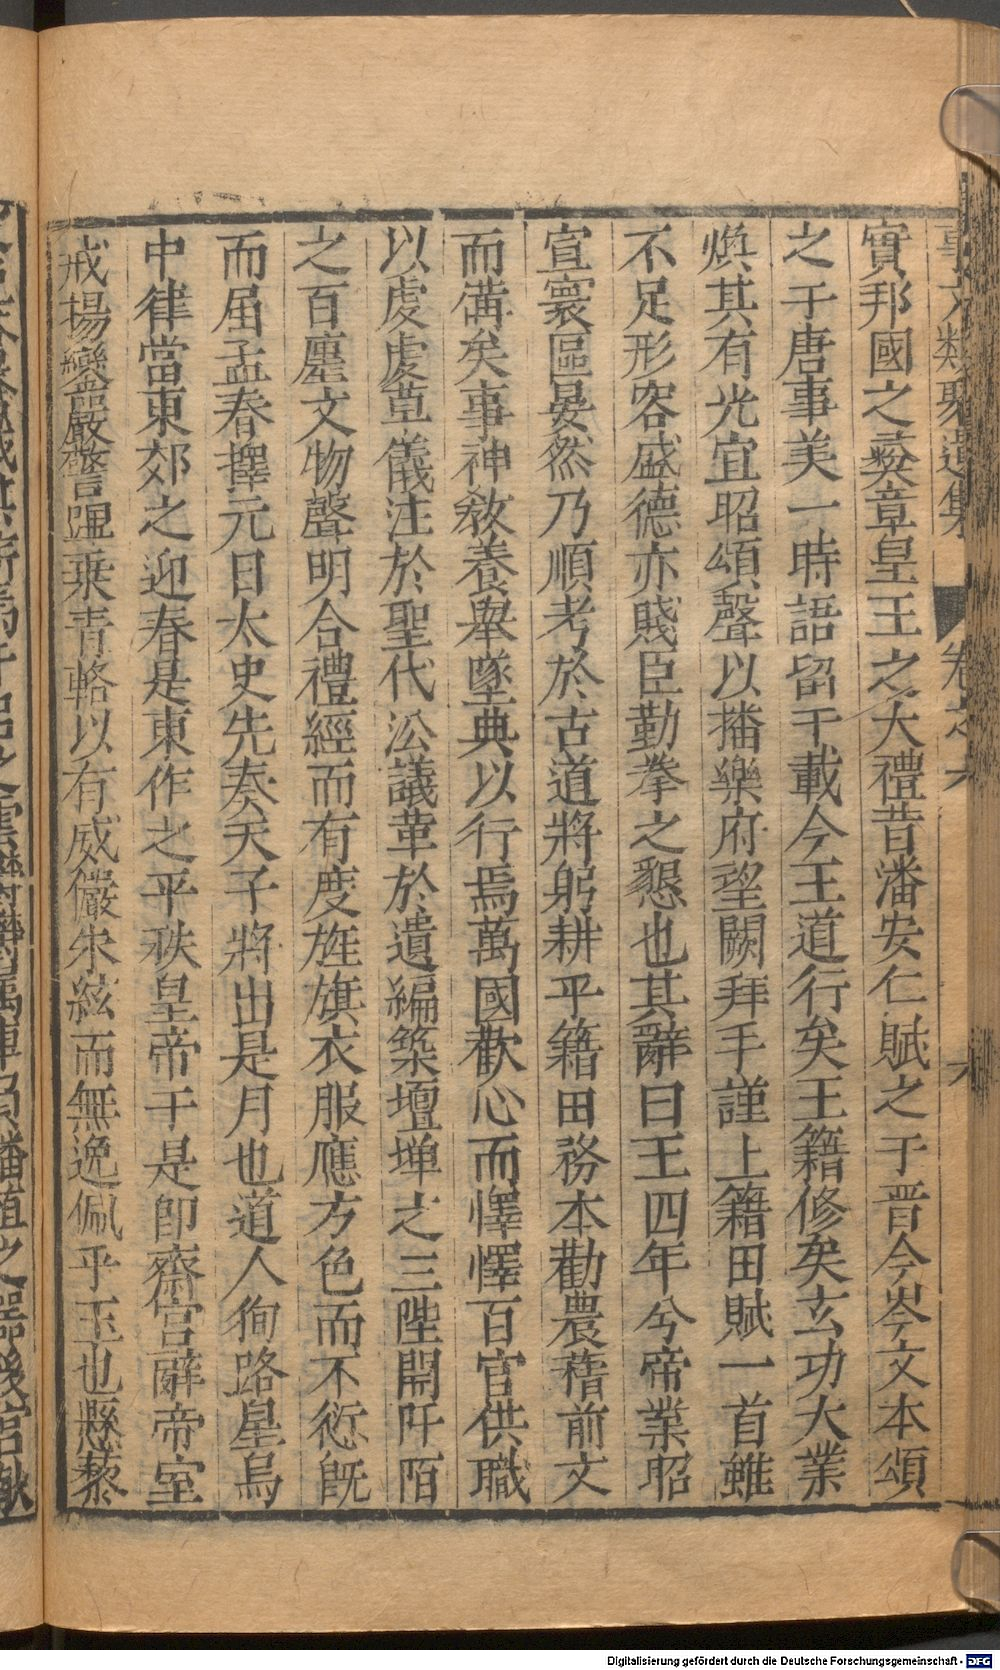 事文類聚遺集 卷之六 六
實邦國之彝章皇王之大禮昔潘安仁賦之于晋今岑文本頌
之于唐事美一時語留千載今王道行矣王籍修矣玄功大業
煥其有光宜昭頌聲以播樂府望闕拜手謹上籍田賦一首雖
不足形容盛德亦賤臣勤拳之懇也其辭曰王四年兮帝業昭
宣寰區晏然乃順考於古道將躬耕乎籍田務本勸農稽前文
而溝矣事神敎養舉墜典以行焉萬國歡心而懌懌百官供職
以虔虔草儀注於聖代㳂議革於遺編築壇墠之三陛開阡陌
之百廛文物聲明合禮經而有度旌旗衣服應方色而不愆旣
而届孟春擇元日太史先奏天子將出是月也道人徇路星鳥
中律當東郊之迎春是東作之平秩皇帝于是卽齋宮辭帝室
戒揚鑾盎嚴警蹕乗青輅以有威儼朱絃而無逸佩乎玉也懸藜